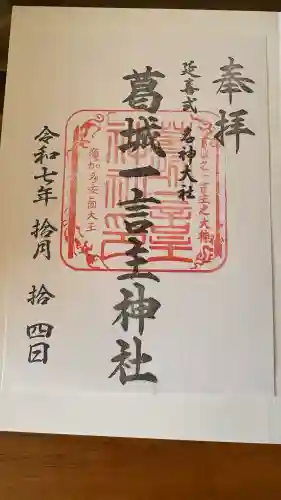 奉拝
延喜式 名神大社
葛城一言主神社
令和七年 拾月 拾四日